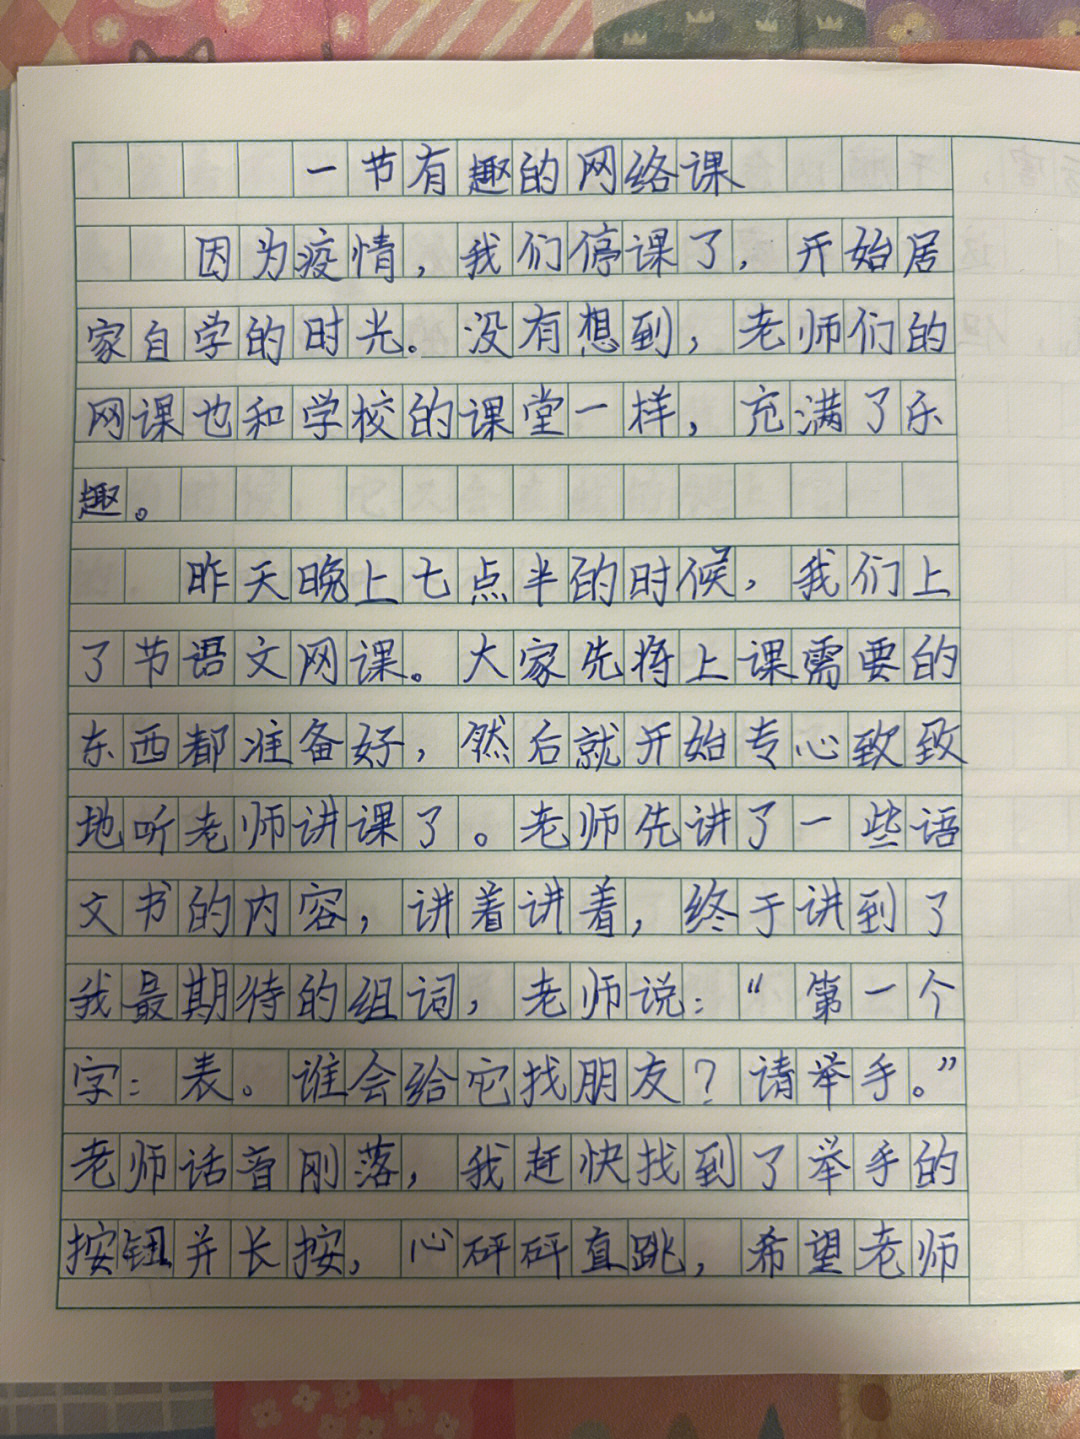 一节有趣的网络课
因为疫情，我们停课了，开始居
家自学的时光。没有想到，老师们的
网课也和学校的课堂一样，充满了乐
趣。
昨天晚上七点半的时候，我们上
了节语文网课。大家先将上课需要的
东西都准备好，然后就开始专心致致
地听老师讲课了。老师先讲了一些语
文书的内容，讲着讲着，终于讲到了
我最期待的组词，老师说：“第一个
字：表。谁会给它找朋友？请举手。”
老师话音刚落，我赶快找到了举手的
按钮并长按，心砰砰直跳，希望老师